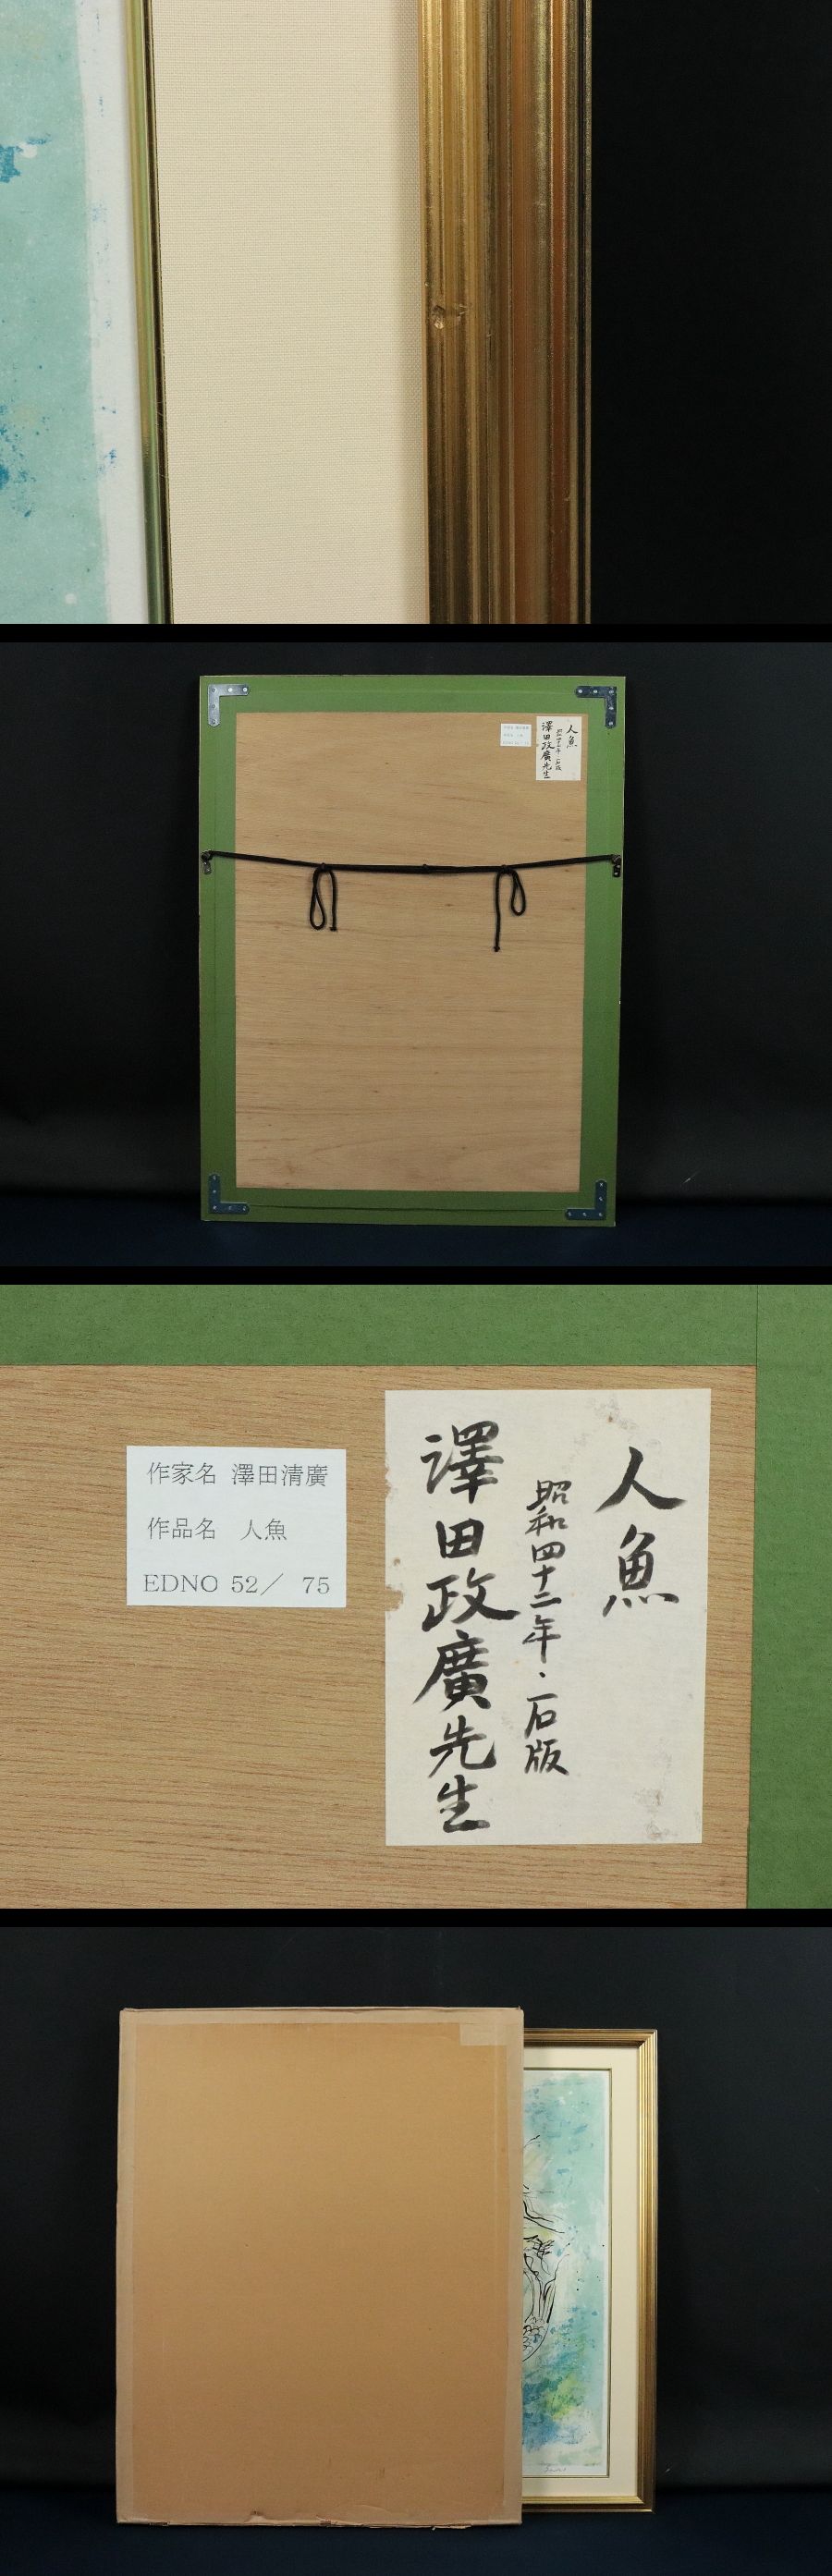 人魚
昭和四十二年・石版
澤田政廣先生
作家名 澤田清廣
作品名 人魚
EDNO 52／ 75